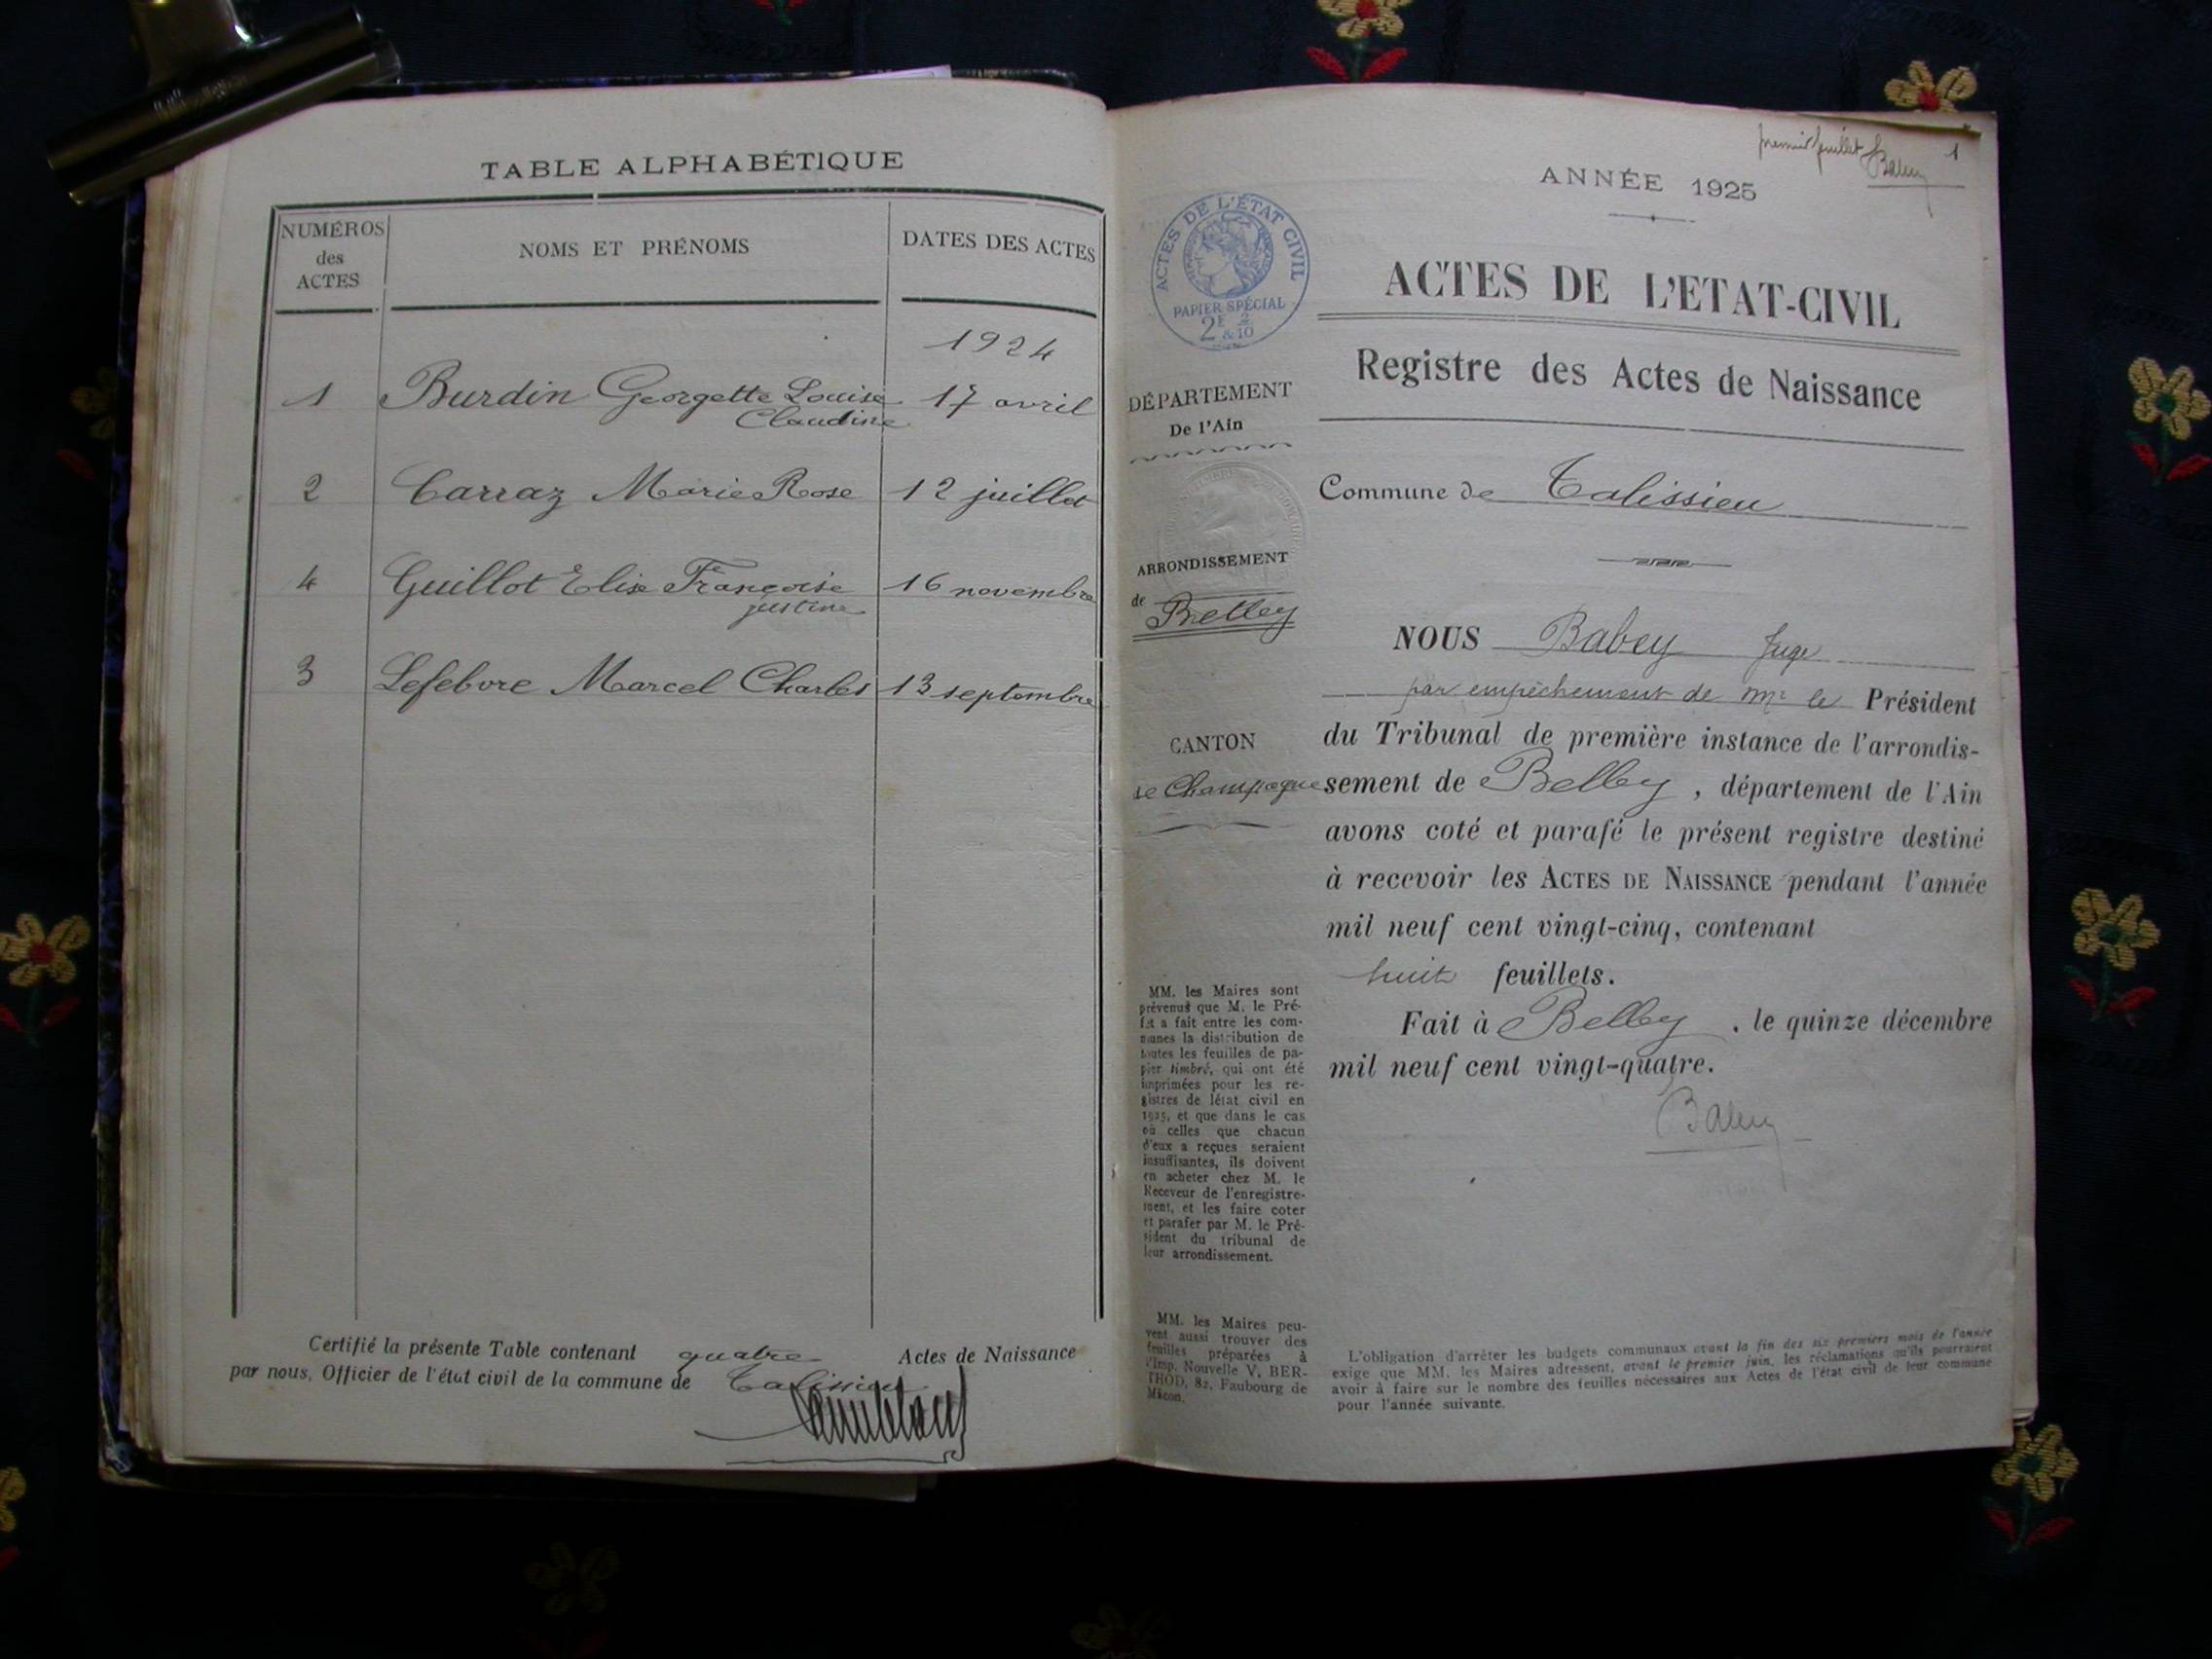 TABLE ALPHABÉTIQUE
NUMÉROS des ACTES
NOMS ET PRÉNOMS
DATES DES ACTES
1924
1 Burdin Georgette Louise 17 avril
Claudine
2 Carraz Marie Rose 12 juillet
4 Guillot Elise Françoise 16 novembre
justine
3 Lefebvre Marcel Charles 13 septembre
Certifié la présente Table contenant quatre Actes de Naissance
par nous, Officier de l'état civil de la commune de Talissieu
premier feuillet Babey 1
ANNÉE 1925
ACTES DE L'ÉTAT CIVIL
PAPIER SPÉCIAL
2F & 2/10
ACTES DE L'ETAT-CIVIL
Registre des Actes de Naissance
DÉPARTEMENT
De l'Ain
Commune de Talissieu
ARRONDISSEMENT
de Belley
CANTON
de Champagne
NOUS Babey Juge
par empêchement de Mr le Président
du Tribunal de première instance de l'arrondis-
sement de Belley, département de l'Ain
avons coté et parafé le présent registre destiné
à recevoir les ACTES DE NAISSANCE pendant l'année
mil neuf cent vingt-cinq, contenant
huit feuillets.
Fait à Belley, le quinze décembre
mil neuf cent vingt-quatre.
Babey
MM. les Maires sont
prévenus que M. le Pré-
fet a fait entre les com-
munes la distribution de
toutes les feuilles de pa-
pier timbré, qui ont été
imprimées pour les re-
gistres de létat civil en
1925, et que dans le cas
où celles que chacun
d'eux a reçues seraient
insuffisantes, ils doivent
en acheter chez M. le
Receveur de l'enregistre-
ment, et les faire coter
et parafer par M. le Pré-
sident du tribunal de
leur arrondissement.
MM. les Maires peu-
vent aussi trouver des
feuilles préparées à
l'Imp. Nouvelle V. BER-
THOD, 82, Faubourg de
Mâcon.
L'obligation d'arrêter les budgets communaux avant la fin des six premiers mois de l'année
exige que MM. les Maires adressent, avant le premier juin, les réclamations qu'ils pourraient
avoir à faire sur le nombre des feuilles nécessaires aux Actes de l'état civil de leur commune
pour l'année suivante.